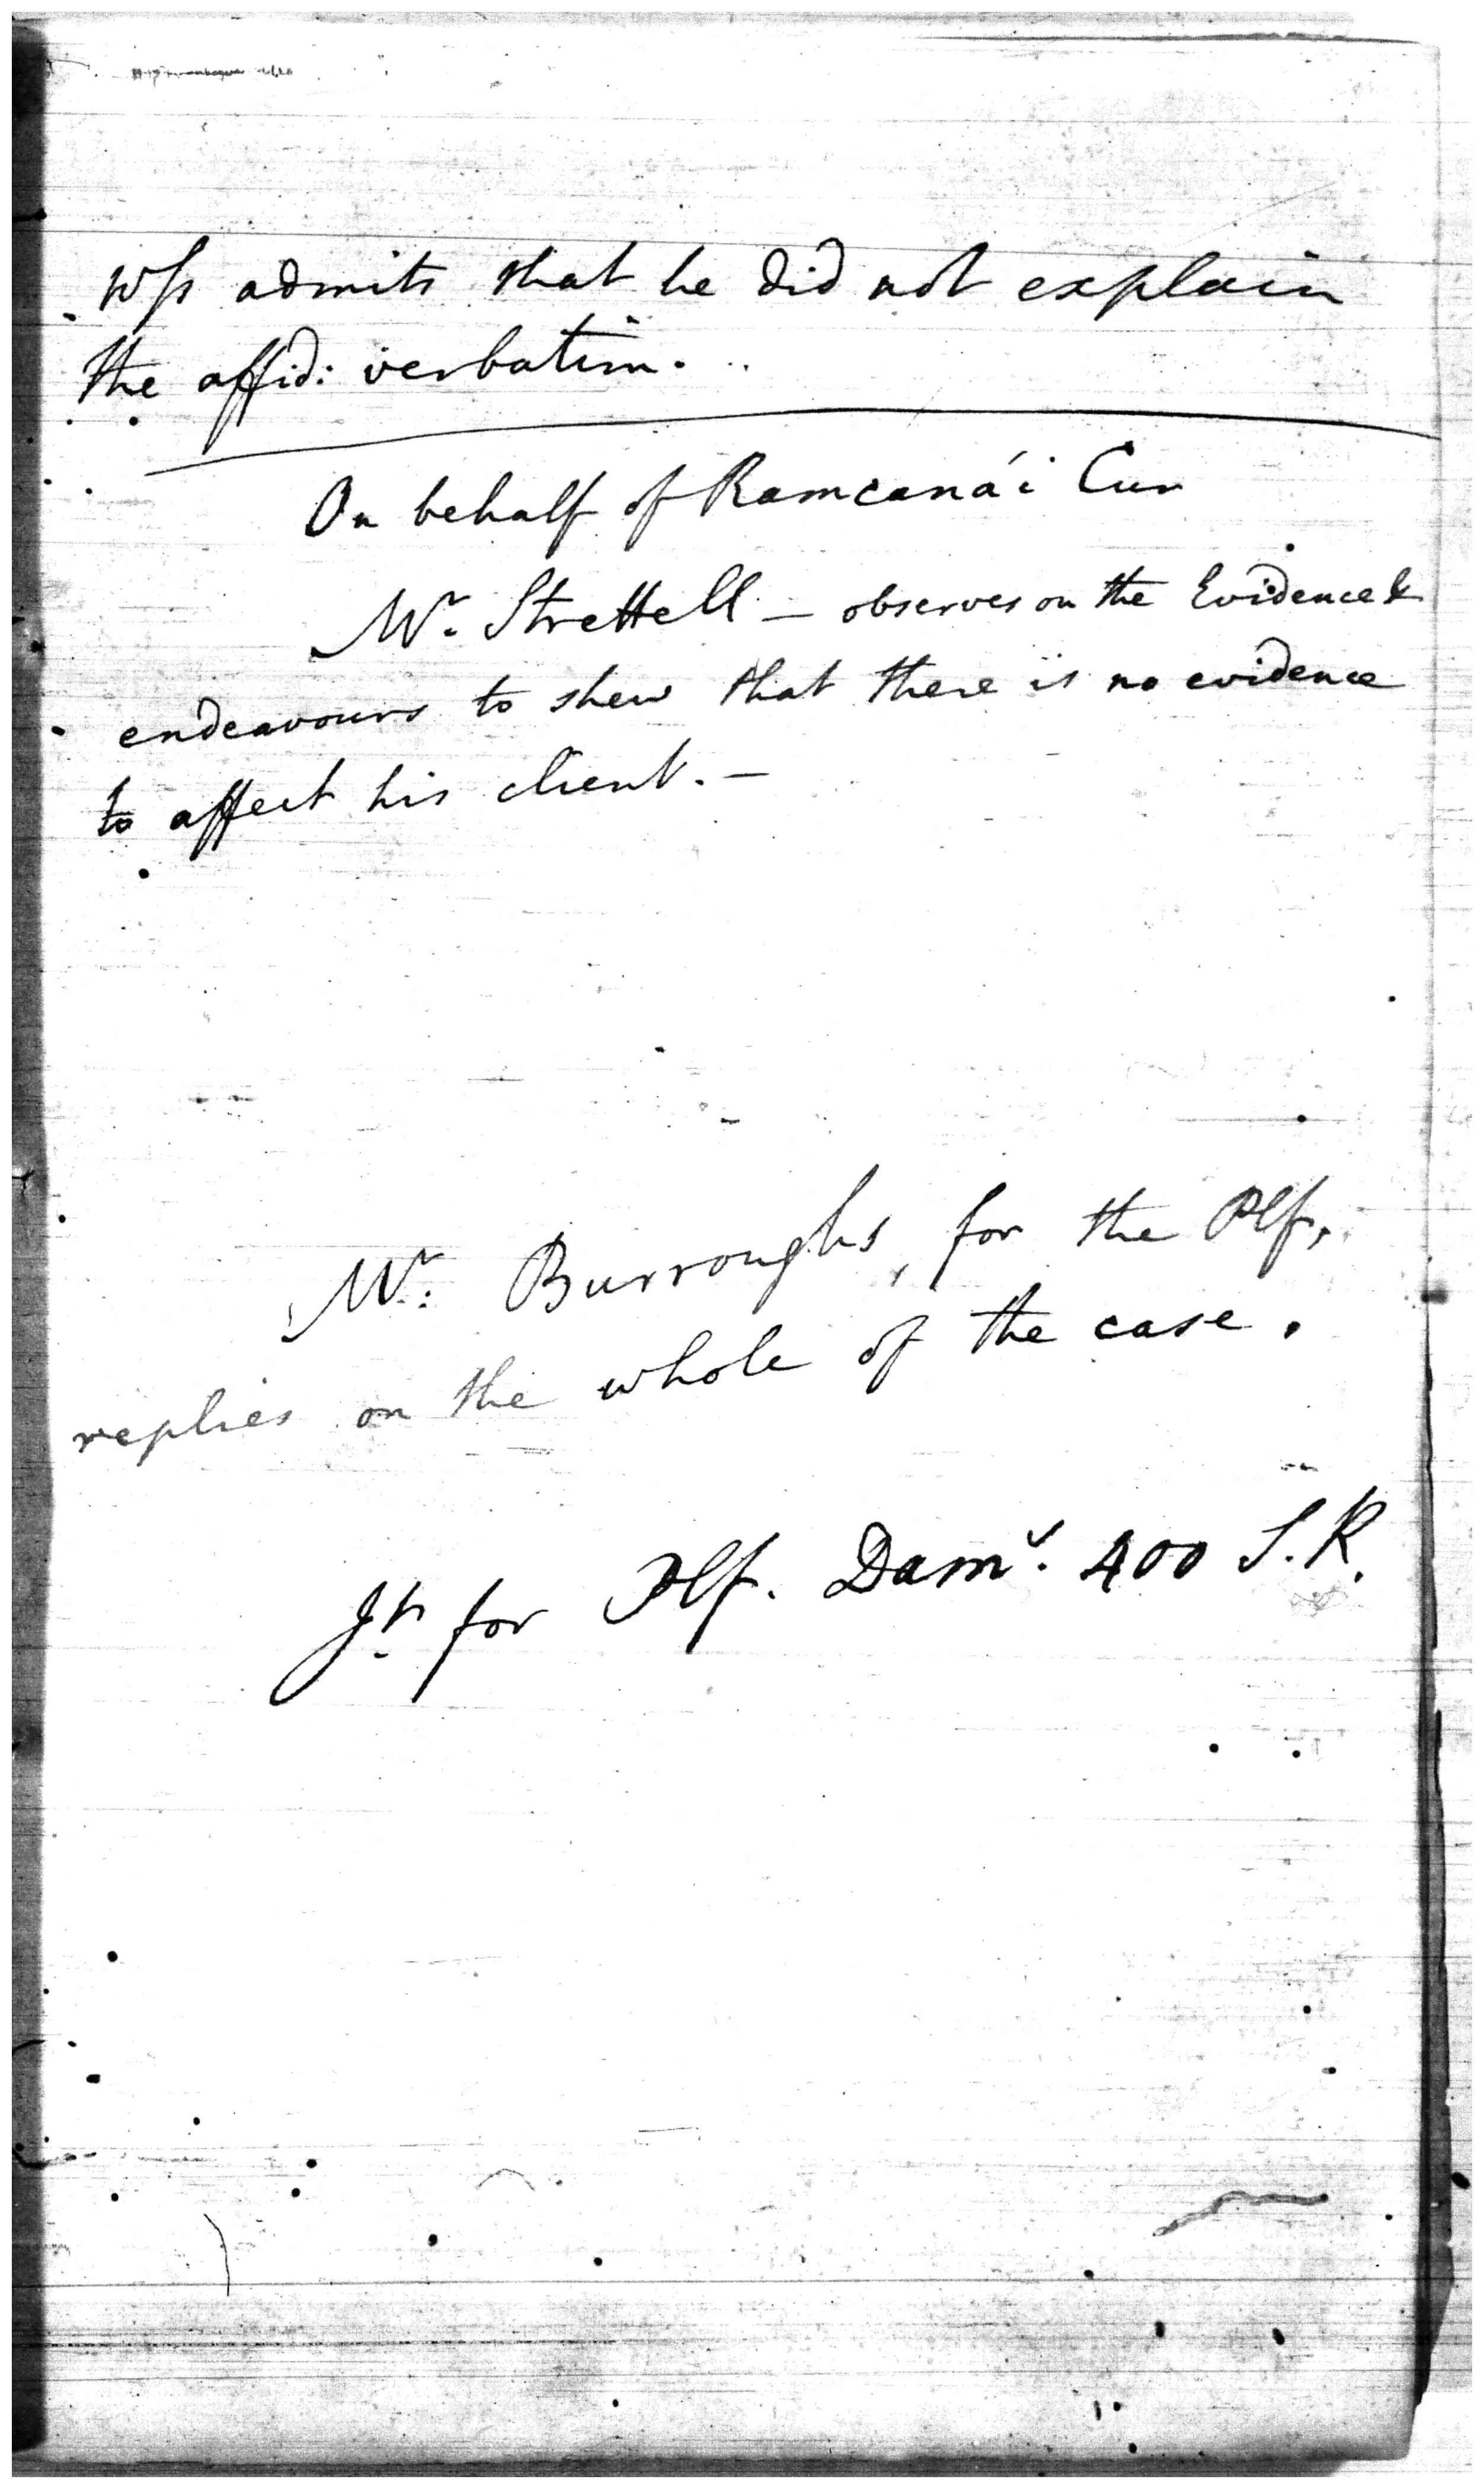 Wss admits that he did not explain
the affid: verbatim.
On behalf of Ramcanái Cur
Mr. Strettell — observes on the Evidence &
endeavours to shew that there is no evidence
to affect his client. —
Mr: Burroughs, for the Plf,
replies on the whole of the case.
Jt. for Plf. Dams. 400 S.R.